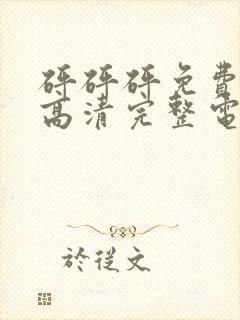 砰砰砰免费
高清完整電
於從文